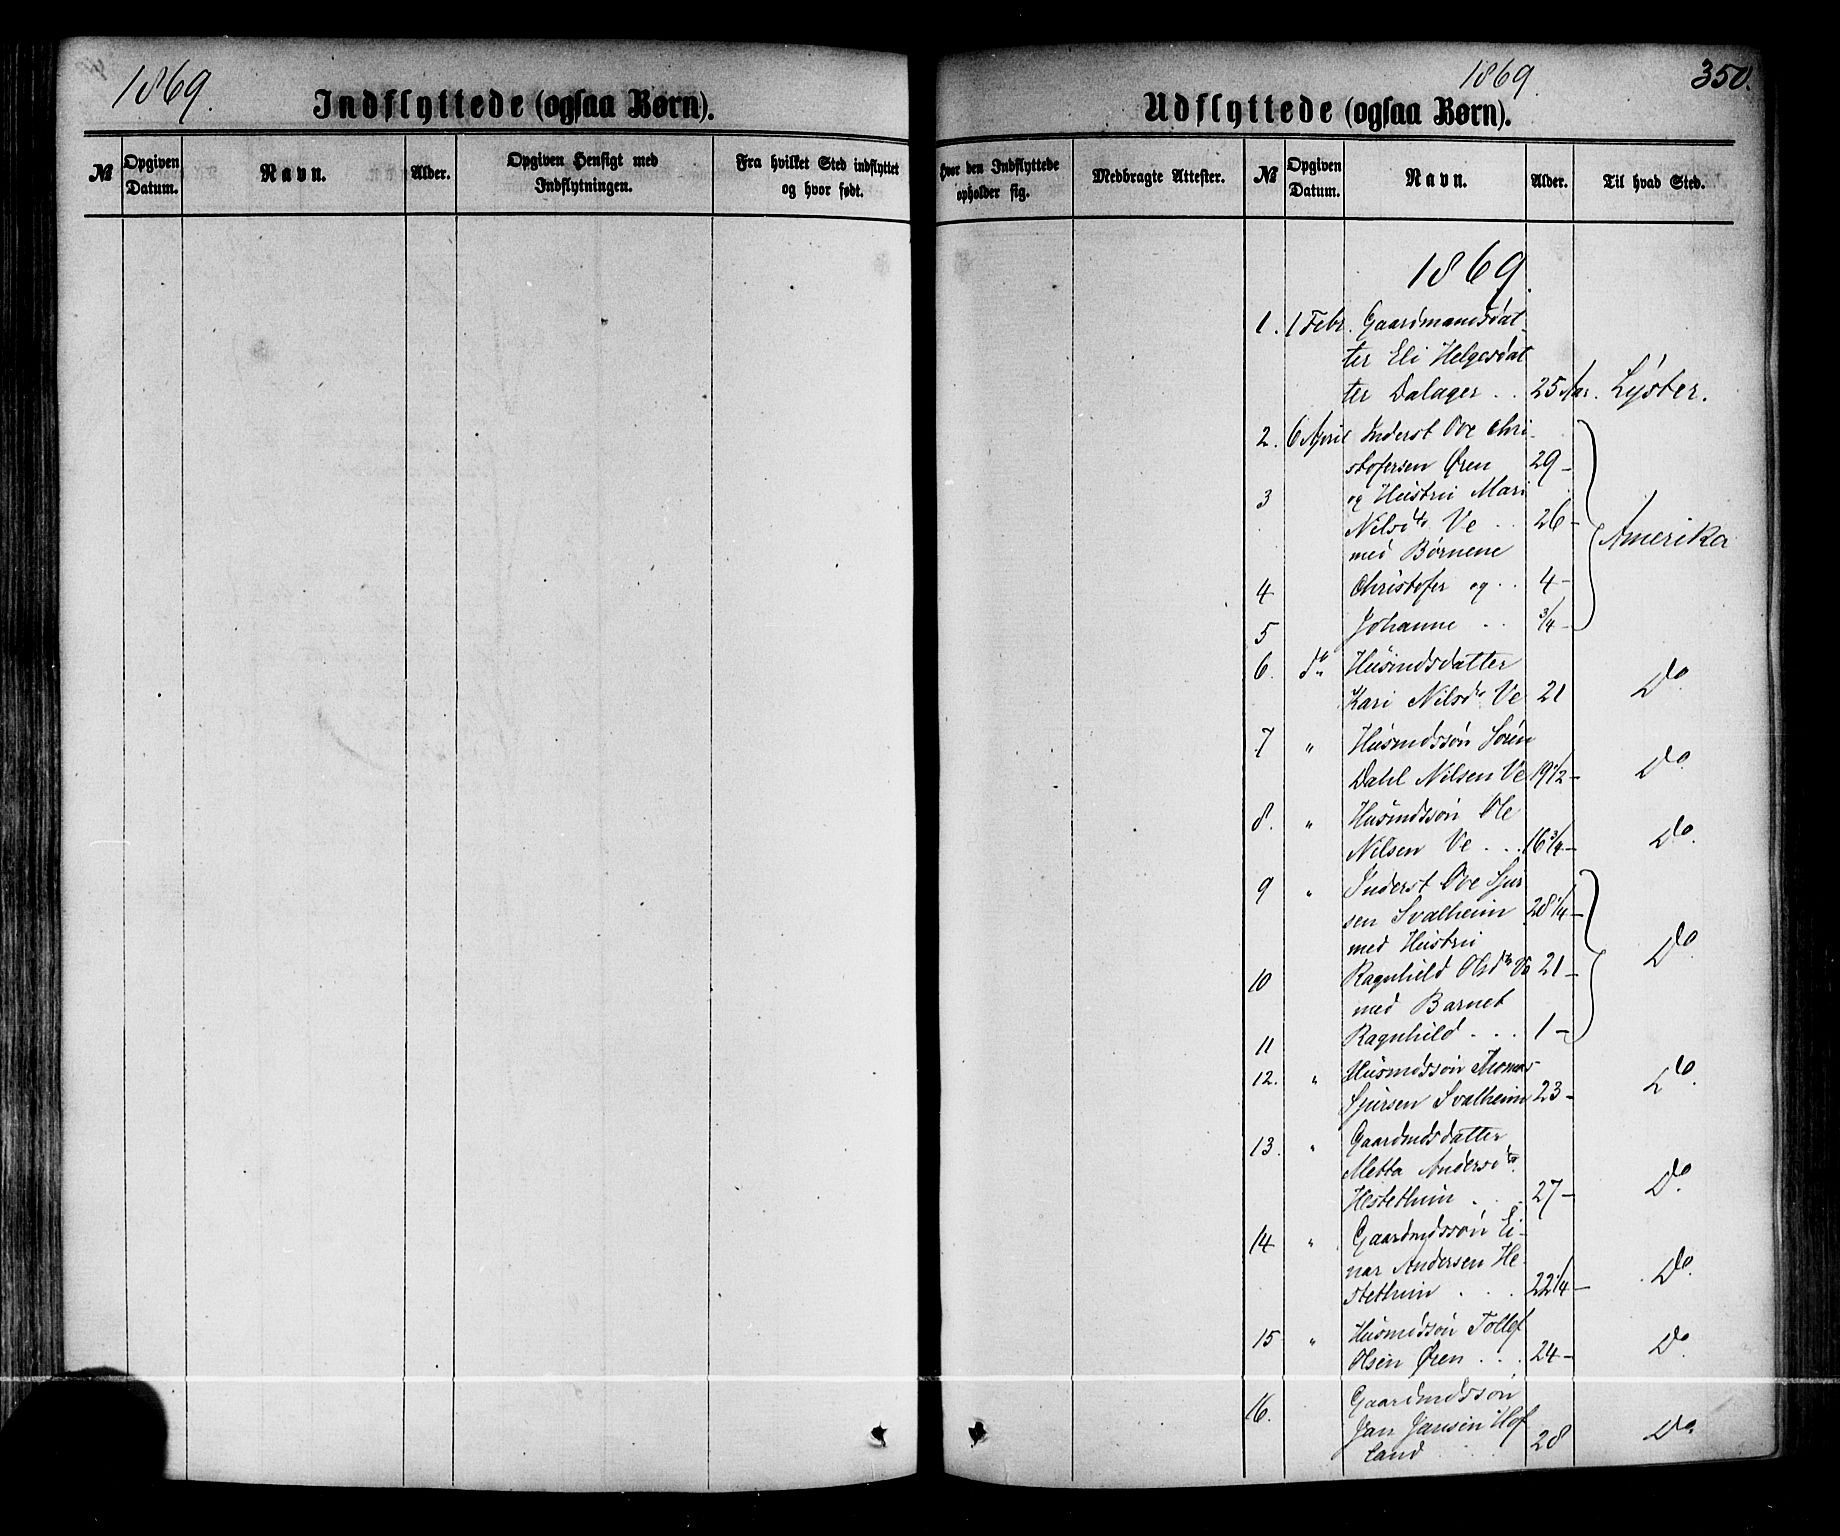 1869.
Indflyttede (ogsaa Børn).
№ Opgiven Datum. Navn. Alder. Opgiven Hensigt med Indflytningen. Fra hvilket Sted indflyttet og hvor født.
1869.
350.
Udflyttede (ogsaa Børn).
Hvor den Indflyttede opholder sig. Medbragte Attester. № Opgiven Datum. Navn. Alder. Til hvad Sted.
1869.
1. 1 Febr. Gaardmandsdat-
ter Eli Helgesdat
ter Dalager . . 25 Aar. Lyster.
2. 6 April Inderst Ove Chri-
stofersen Øren 29 -
3 og Hustru Mari
Nilsdtr Ve . . 26 - Amerika
med Børnene
4 Christofer og . . 4 -
5 Johanne . . 3/4 -
6. do Husmdsdatter
Kari Nilsdr Ve 21 Do.
7 " Husmdssøn Søren
Dahl Nilsen Ve 19 1/2 - Do.
8. " Husmdssøn Ole
Nilsen Ve . . . 16 3/4 - Do.
9 " Inderst Ove Sjur
sen Svalheim 28 1/4 -
med Hustru Do
10 Ragnhild Olsdtr Ve 21 -
med Barnet
11 Ragnhild . . . 1 -
12. " Husmdssøn Thomas
Sjursen Svalheim 23 - Do.
13. " Gaardmdsdatter
Metta Andersdtr
Hestethun . . . 27 - Do.
14 " Gaardmdssøn Ei-
nar Andersen He-
stethun . . . 22 1/4 - Do.
15 " Husmdssøn Tollef
Olsen Øren . . . 24 - Do.
16. Gaardmdssøn
Jan Jansen Hof
land 28 Do.